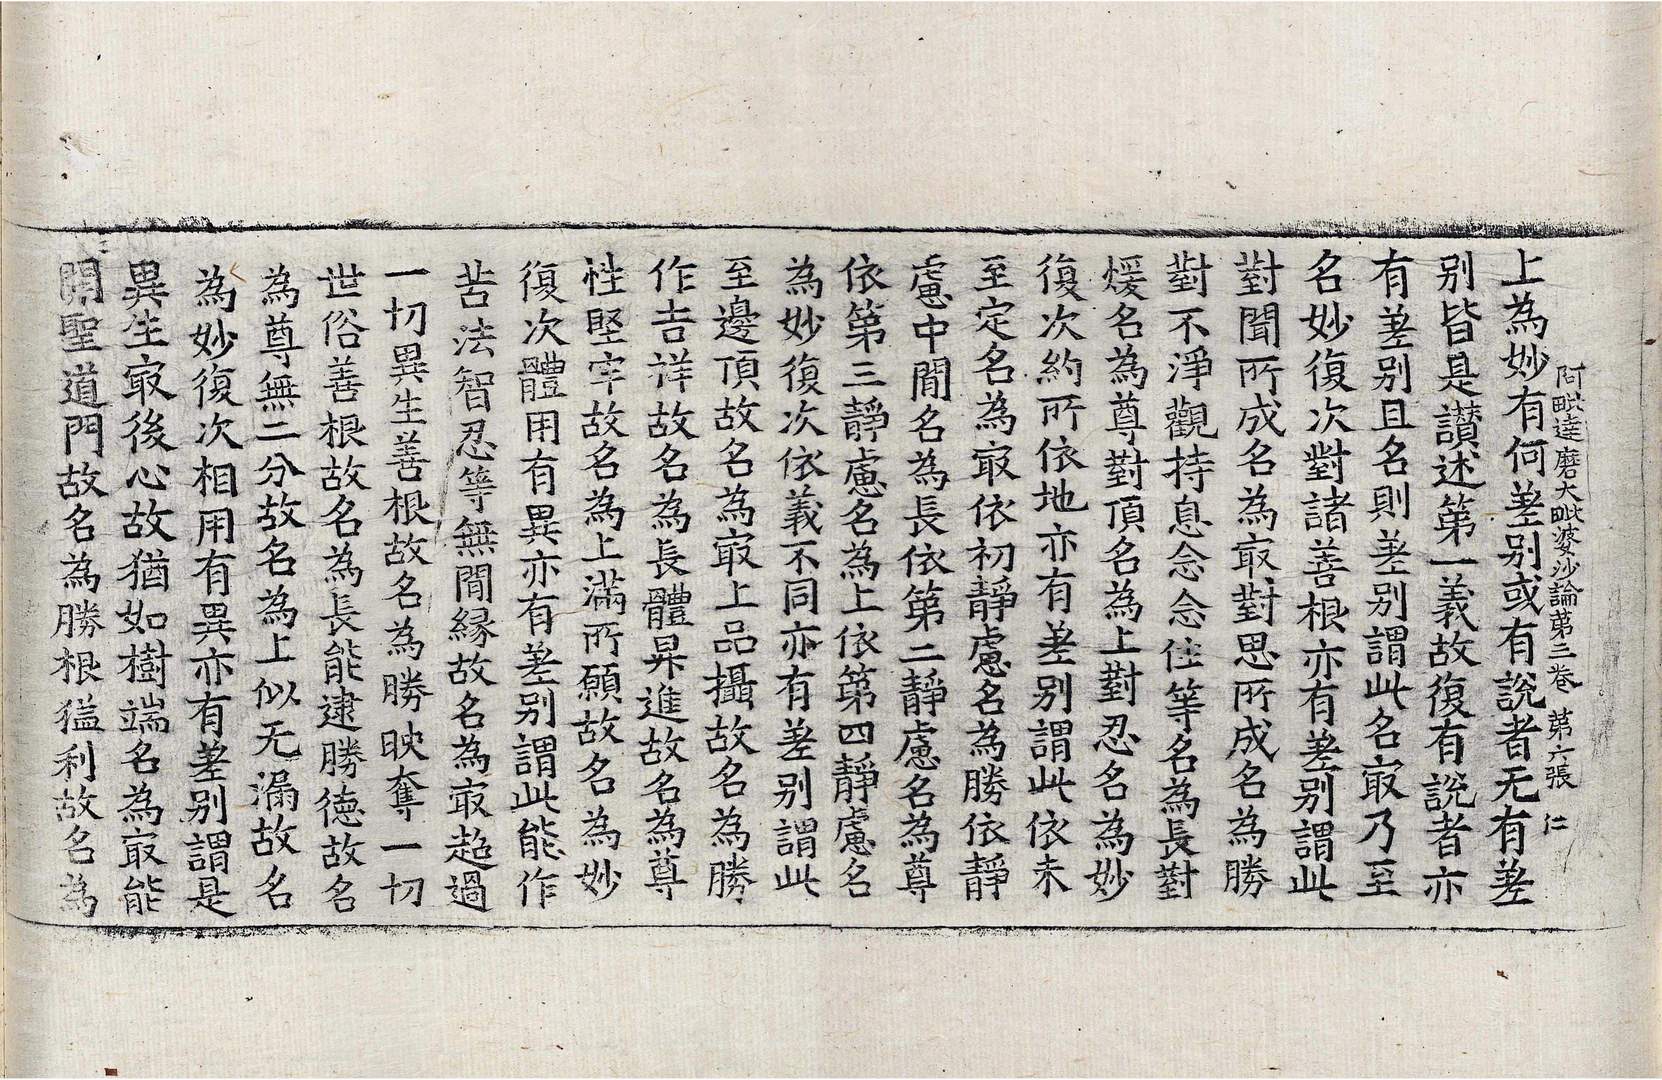 阿毗達磨大毗婆沙論第三卷 第六張 仁
上為妙有何差别或有說者无有差
别皆是讃述第一義故復有說者亦
有差别且名則差别謂此名㝡乃至
名妙復次對諸善根亦有差别謂此
對聞所成名為㝡對思所成名為勝
對不淨觀持息念念住等名為長對
煖名為尊對頂名為上對忍名為妙
復次約所依地亦有差别謂此依未
至定名為㝡依初靜慮名為勝依靜
慮中間名為長依第二靜慮名為尊
依第三靜慮名為上依第四靜慮名
為妙復次依義不同亦有差别謂此
至邊頂故名為㝡上品攝故名為勝
作吉祥故名為長體昇進故名為尊
性堅牢故名為上滿所願故名為妙
復次體用有異亦有差别謂此能作
苦法智忍等無間緣故名為㝡超過
一切異生善根故名為勝映奪一切
世俗善根故名為長能逮勝德故名
為尊無二分故名為上似无漏故名
為妙復次相用有異亦有差别謂是
異生㝡後心故猶如樹端名為㝡能
開聖道門故名為勝根猛利故名為